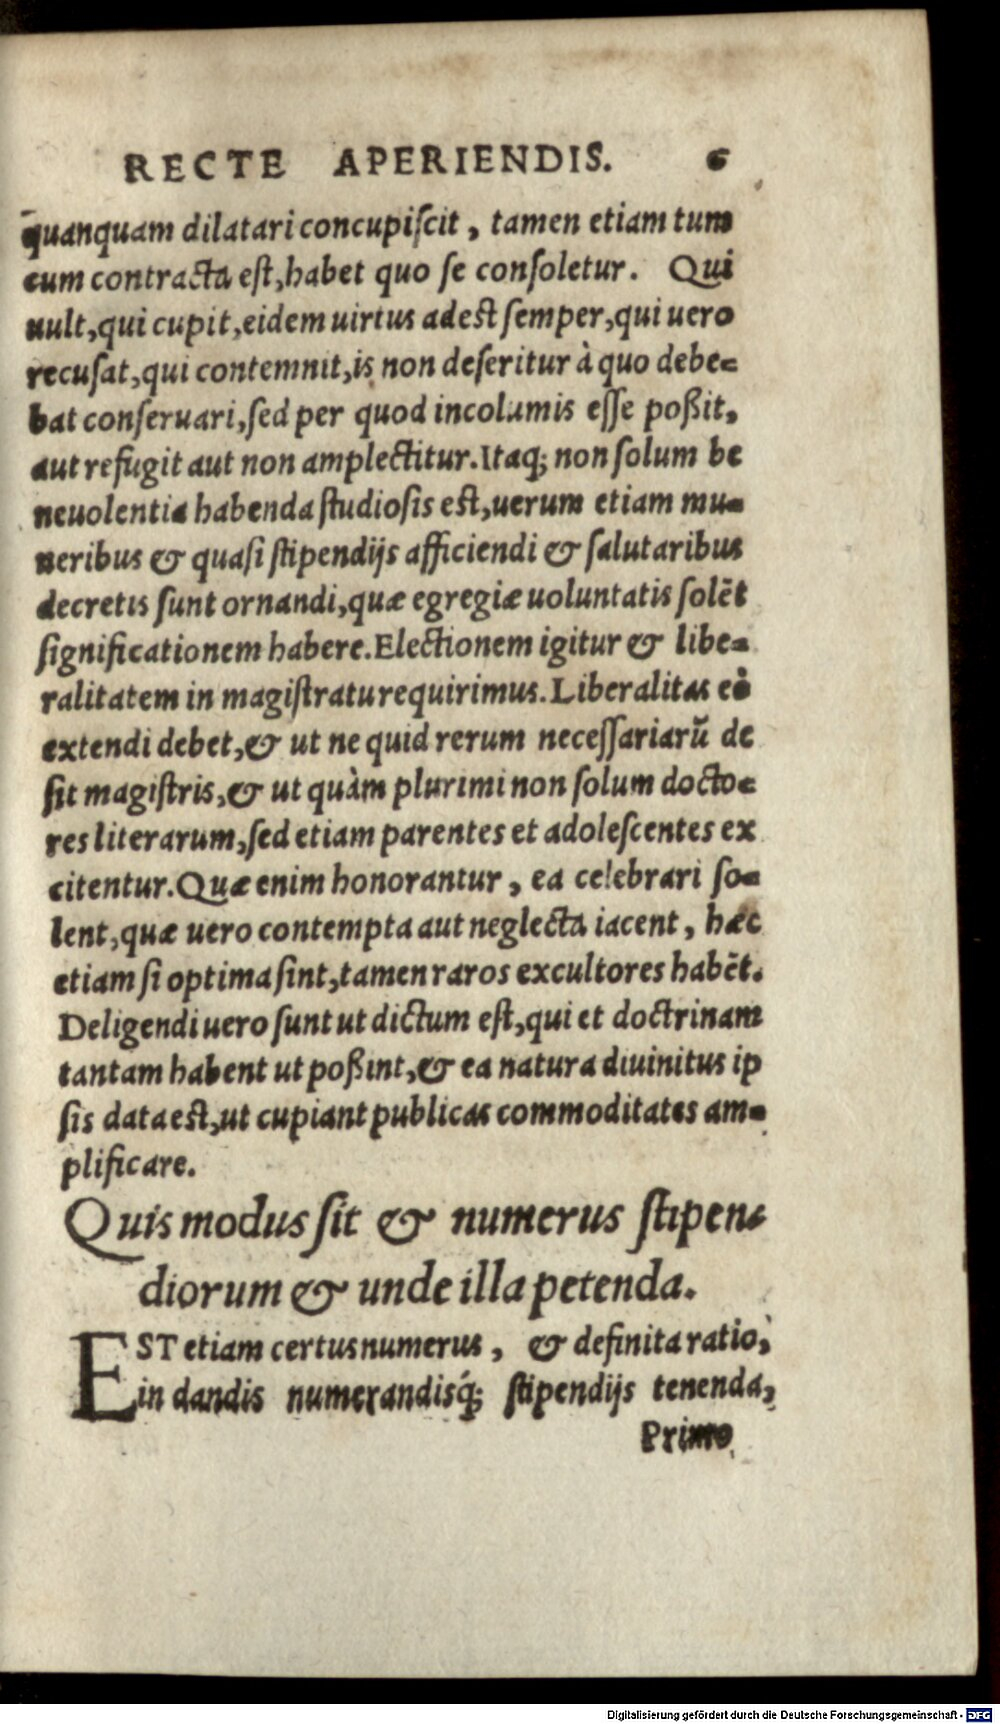 RECTE APERIENDIS. 6
quanquam dilatari concupiſcit, tamen etiam tum
cum contracta eſt, habet quo ſe conſoletur. Qui
uult, qui cupit, eidem uirtus adeſt ſemper, qui uero
recuſat, qui contemnit, is non deſeritur à quo debe=
bat conſeruari, ſed per quod incolumis eſſe poßit,
aut refugit aut non amplectitur. Itaq; non ſolum be
neuolentia habenda ſtudioſis eſt, uerum etiam mu=
neribus & quaſi ſtipendijs afficiendi & ſalutaribus
decretis ſunt ornandi, quæ egregiæ uoluntatis ſolẽt
ſignificationem habere. Electionem igitur & libe=
ralitatem in magiſtratu requirimus. Liberalitas eò
extendi debet, & ut ne quid rerum neceſſariarũ de
ſit magiſtris, & ut quàm plurimi non ſolum docto=
res literarum, ſed etiam parentes et adoleſcentes ex
citentur. Quæ enim honorantur, ea celebrari ſo=
lent, quæ uero contempta aut neglecta iacent, hæc
etiam ſi optima ſint, tamen raros excultores habẽt.
Deligendi uero ſunt ut dictum eſt, qui et doctrinam
tantam habent ut poßint, & ea natura diuinitus ip
ſis data eſt, ut cupiant publicas commoditates am=
plificare.
Quis modus ſit & numerus ſtipen=
diorum & unde illa petenda.
EST etiam certus numerus, & definita ratio,
in dandis numerandisq́; ſtipendijs tenenda,
Primo
Digitalisierung gefördert durch die Deutsche Forschungsgemeinschaft - DFG